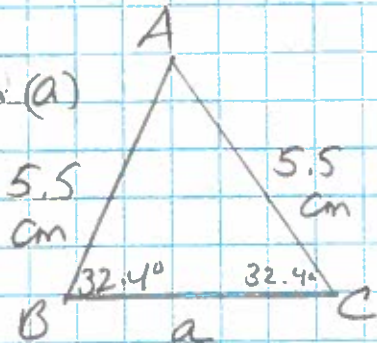 A
(a)
5.5 cm
5.5 cm
32.4°
32.4°
B
C
a